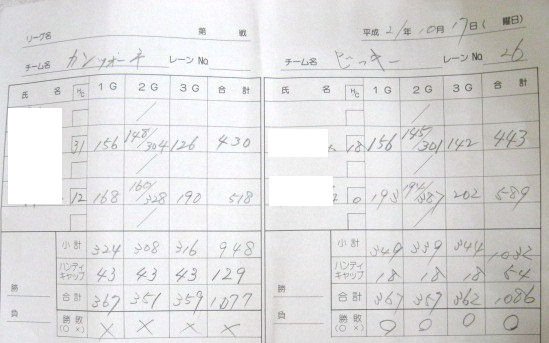 リーグ名 第 戦 平成 21年 10月 17日( 曜日)
チーム名 レーン No. チーム名 ビッキー レーン No. 26
氏 名 HC 1G 2G 3G 合計 氏 名 HC 1G 2G 3G 合計
31 156 148/304 126 430 18 156 145/301 142 443
12 168 160/328 190 518 0 193 194/387 202 589
小計 324 308 316 948 小計 349 339 344 1032
ハンディキャップ 43 43 43 129 ハンディキャップ 18 18 18 54
勝 合計 367 351 359 1077 勝 合計 367 357 362 1086
負 勝敗(○×) × × × × 負 勝敗(○×) ○ ○ ○ ○